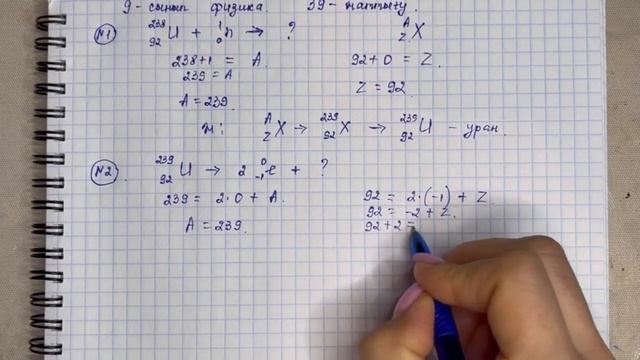 9-сынып физика. 39-жаттығу.
№1 ²³⁸₉₂U + ¹₀n → ? ᴬ_ZX
238+1 = A. 92+0 = Z.
239 = A Z = 92.
A = 239.
ж: ᴬ_ZX → ²³⁹₉₂X → ²³⁹₉₂U – уран.
№2. ²³⁹₉₂U → 2 ⁰₋₁e + ?
239 = 2·0 + A. 92 = 2·(-1) + Z.
92 = -2 + Z.
A = 239. 92+2 =